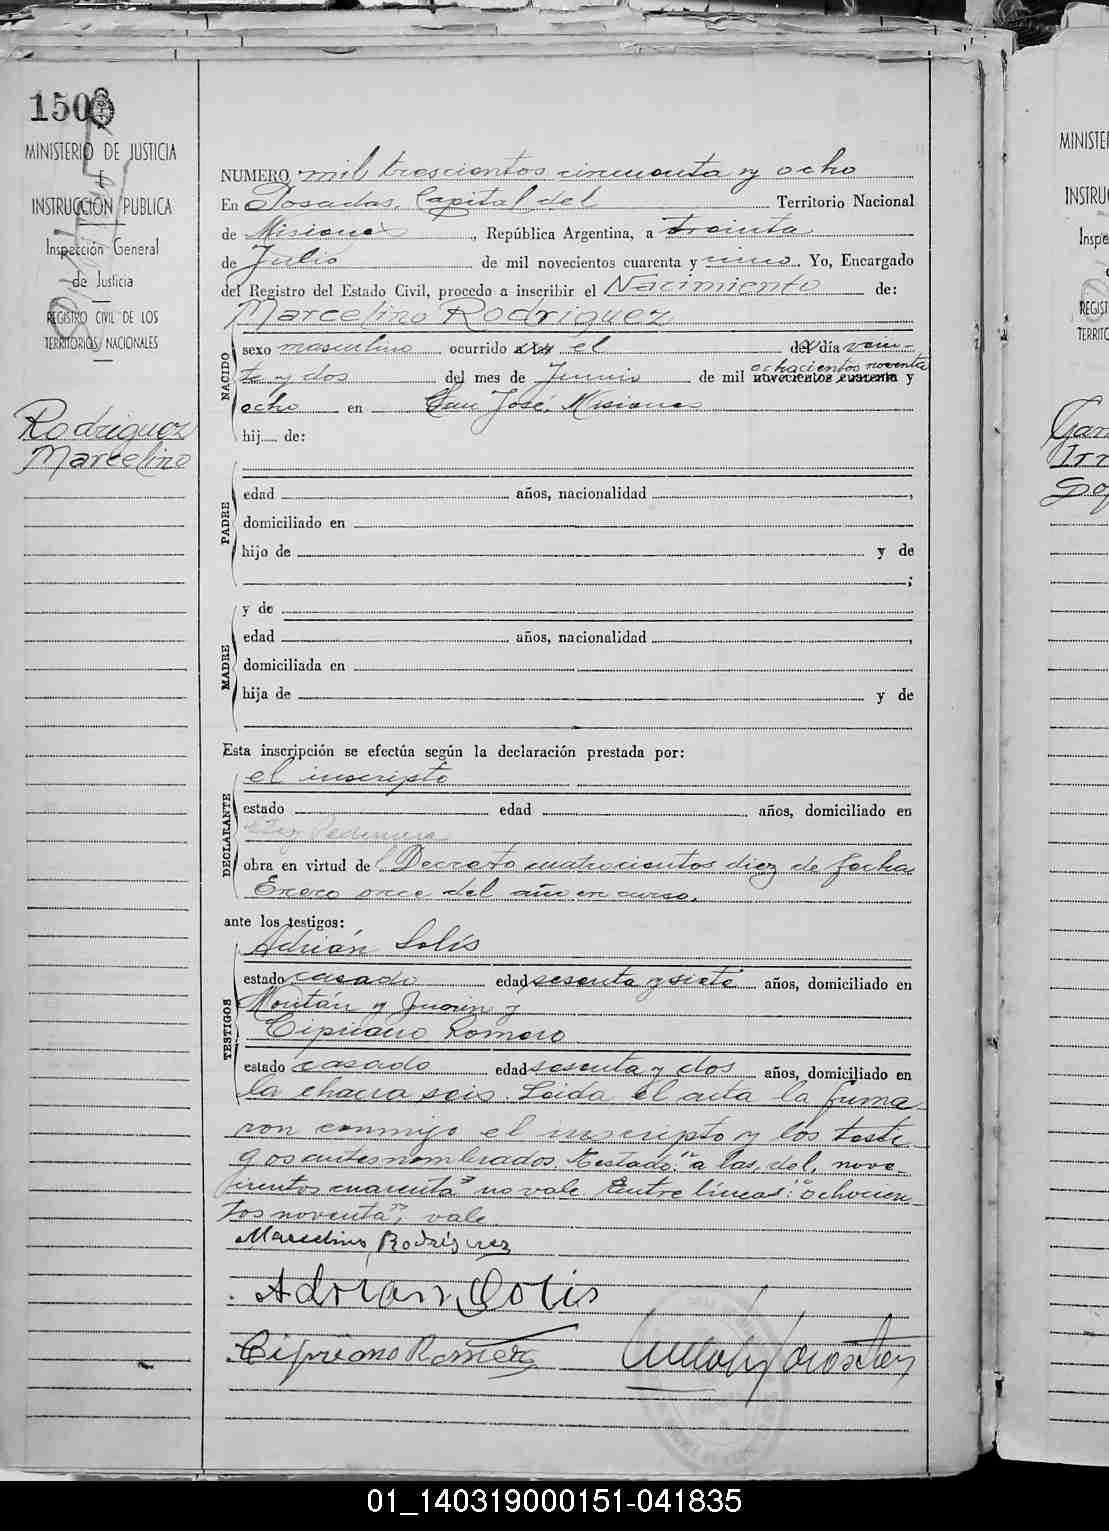 150
MINISTERIO DE JUSTICIA
INSTRUCCIÓN PUBLICA
Inspección General
de Justicia
REGISTRO CIVIL DE LOS
TERRITORIOS NACIONALES
Rodriguez
Marcelino
NUMERO mil trescientos cincuenta y ocho
En Posadas, Capital del Territorio Nacional
de Misiones, República Argentina, a treinta
de Julio de mil novecientos cuarenta y uno. Yo, Encargado
del Registro del Estado Civil, procedo a inscribir el Nacimiento de:
Marcelino Rodriguez
NACIDO
sexo masculino ocurrido a las el del día vein-
te y dos del mes de Junio de mil novecientos cuarenta y
ochocientos noventa
ocho en San José, Misiones
hij de:
PADRE
edad años, nacionalidad ,
domiciliado en
hijo de y de
;
MADRE
y de
edad años, nacionalidad ,
domiciliada en
hija de y de
Esta inscripción se efectúa según la declaración prestada por:
DECLARANTE
el inscripto
estado edad años, domiciliado en
obra en virtud del Decreto cuatrocientos diez de fecha
Enero once del año en curso.
ante los testigos:
TESTIGOS
Adrián Solís
estado casado edad sesenta y siete años, domiciliado en
y
Cipriano Romero
estado casado edad sesenta y dos años, domiciliado en
la chacra seis. Leida el acta la firma-
ron conmigo el inscripto y los testi-
gos antes nombrados. Testado: "a las, del, nove-
cientos cuarenta" no vale. Entre líneas: "ochocien-
tos noventa", vale.
Marcelino Rodriguez
Adrian Solis
Cipriano Romero
MINISTE
INSTRU
Inspe
REGIST
TERRITO
01_140319000151-041835